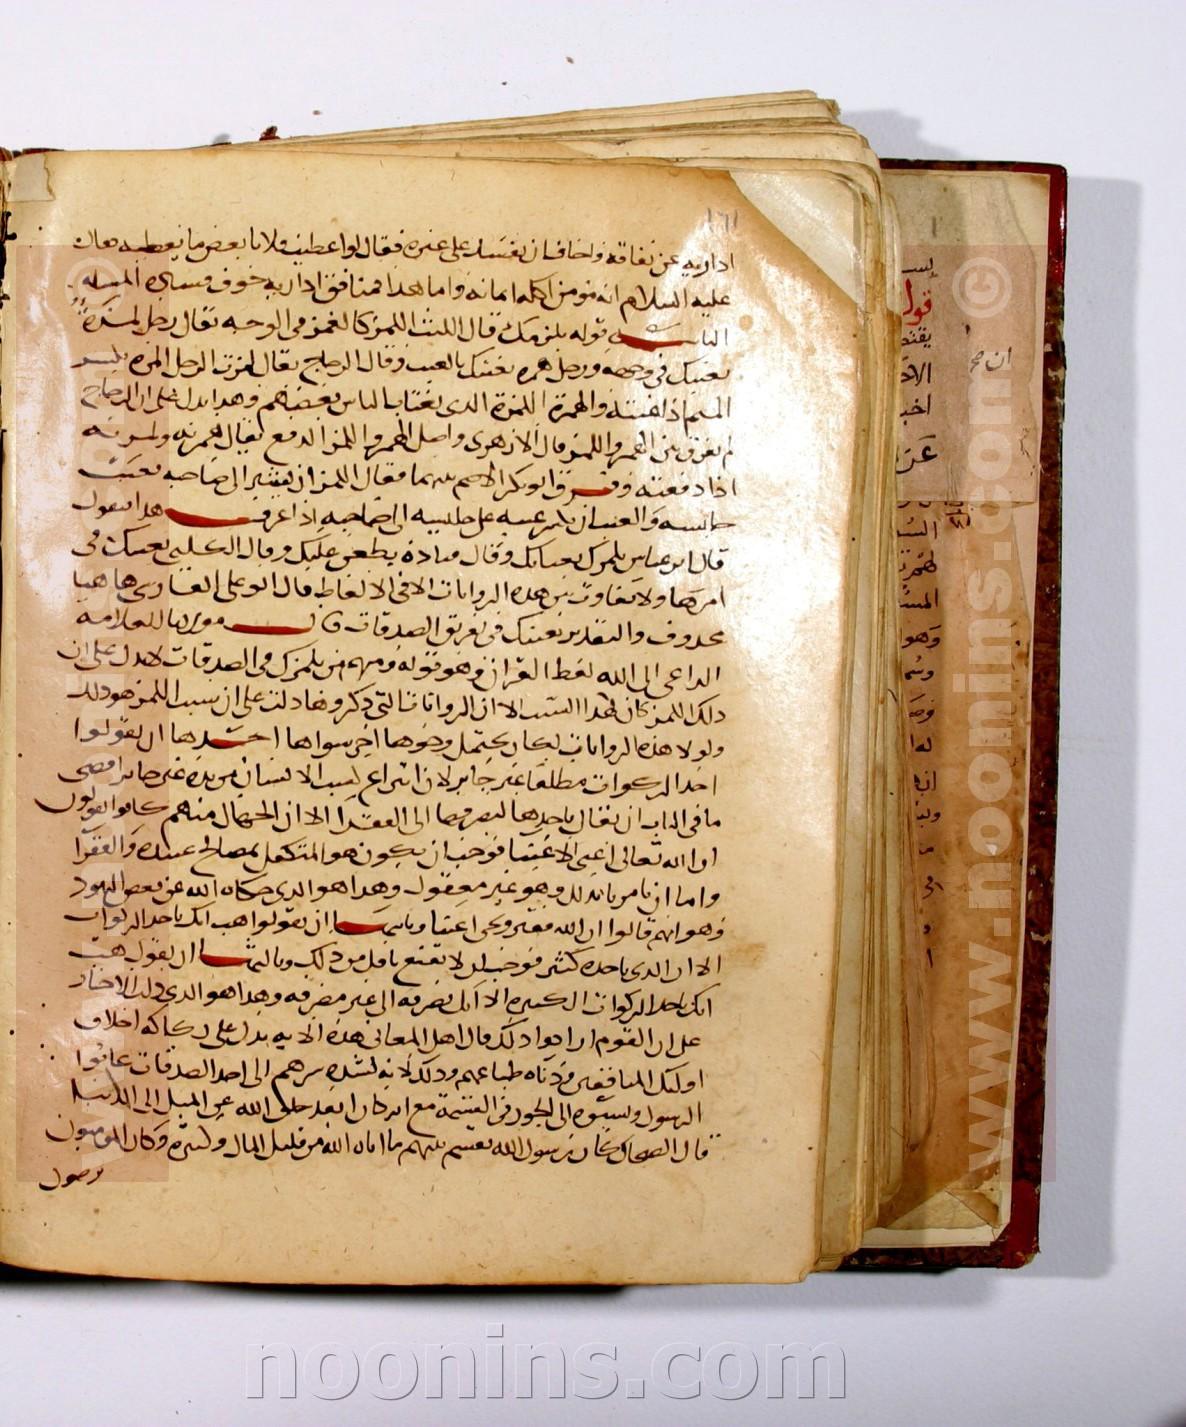 اذا رايه عن نفاقه واخاف ان يفسد على غيره فقال لو اعطيت فلانا بعض ما يعطيه فقال
عليه السلام انه مومن اكله ايمانه واما هذا فمنافق اداريه خوف فساده المسله
الثانيه قوله يلمزك قال الليث اللمز كالهمز في الوجه يقال رجل لمزة
يعيبك في وجهه ورجل همزه يعيبك بالعيب وقال الزجاج يقال لمزت الرجل المزه بكسر
الميم اذا عبته والهمزة اللمزة الذى يغتاب الناس بعيبهم وهذا يدل على ان الزجاج
لم يفرق بين الهمز واللمز قال الازهرى واصل الهمز واللمز الدفع يقال همزته ولمزته
اذا دفعته وفرق ابوبكر الاصم بينهما فقال اللمز ان يشير الى صاحبه بعيب
جليسه والهمز ان يكسر عينه على جليسه الى صاحبه اذا عرفت هذا فنقول
قال ابن عباس يلمزك يغتابك وقال قتادة يطعن عليك وقال الكلبى يعيبك فى
امر ما ولا تفاوت بين هذه الروايات الا فى الالفاظ قال ابو على الفارسى هاهنا
محذوف والتقدير يعيبك فى تفريق الصدقات قال مولانا العلامة
الداعى الى الله لفظ القران وهو قوله ومنهم من يلمزك فى الصدقات لا يدل على ان
ذلك اللمز كان لهذا السبب الا ان الروايات التى ذكروها دلت على ان سبب اللمز هو ذلك
ولو لا هذه الروايات لكان يحتمل وجوها اخر سواها احدها ان يقولوا
اخذ الزكوات مطلقا غير جايز لان انتزاع كسب الانسان من يده غير جايز اقصى
ما فى الباب ان يقال ياخذها ليصرفها الى الفقرا الا ان الجهال منهم كانوا يقولون
ان الله تعالى اغنى الاغنيا فوجب ان يكون هو المتكفل بمصالح عبيده والفقرا
واما ان يامرنا بذلك فهو غير معقول وهذا هو الذى حكاه الله عن بعض اليهود
وهو انهم قالوا ان الله فقير ونحن اغنيا وثانيها ان يقولوا هب انك تاخذ الزكوات
الا ان الذى تاخذه كثير فوجب ان تقنع باقل من ذلك وثالثها ان يقول هب
انك تاخذ الزكوات الكثيره الا انك تصرفه الى غير مصرفه وهذا هو الذى دلت الاخبار
على ان القوم ارادوا ذلك قال اهل المعانى هذه الايه يدل على ركاكه اخلاق
اوليك المنافقين ودناه طباعهم وذلك لانه لشده شرههم الى اخذ الصدقات عابوا
الرسول ونسبوه الى الجور فى القسمة مع انه كان ابعد خلق الله عن الميل الى الدنيا
قال الضحاك كان رسول الله يقسم بينهم ما اتاه الله من قليل المال وكثيره وكان المومنون
يرضون
www.noonins.com ©
noonins.com